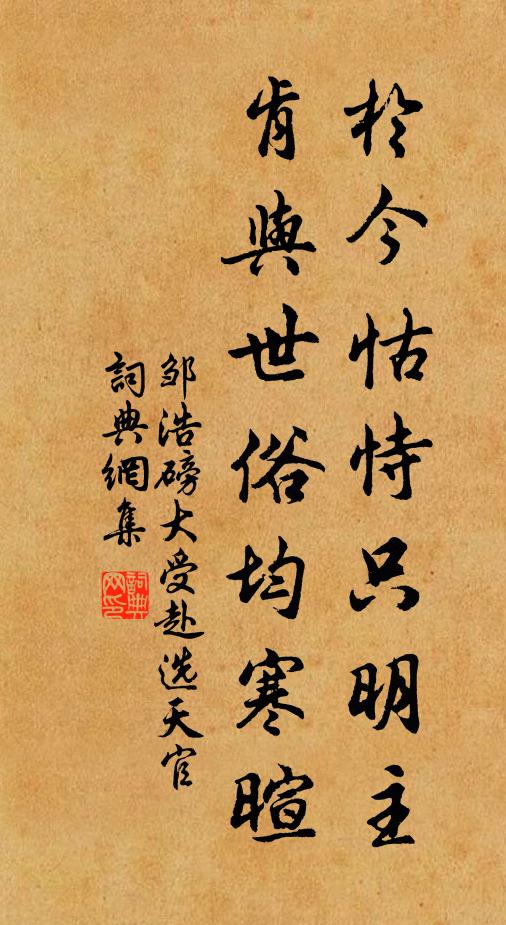 於今怙恃只明主
肯與世俗均寒暄
邹浩磅大受赴选天官
詞典網集
詞典网印